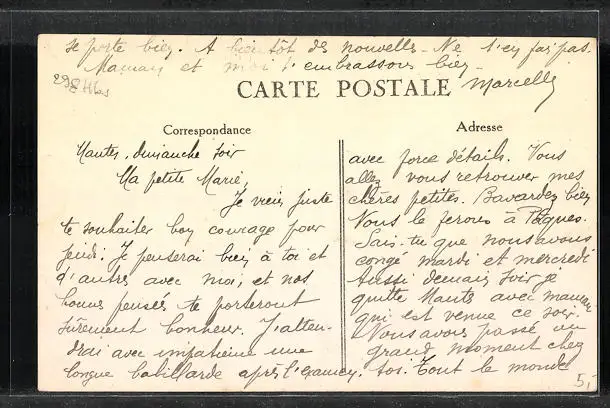 se porte bien. A bientôt des nouvelles. Ne t'en fais pas.
Maman et moi t'embrassons bien.
Marcelle
CARTE POSTALE
Correspondance
Adresse
Nantes, dimanche soir
Ma petite Marie
Je viens juste
te souhaiter bon courage pour
jeudi. Je penserai bien à toi et
d'autres avec moi, et nos
bonnes pensées te porteront
sûrement bonheur. J'atten-
drai avec impatience une
longue babillarde après l'examen,
avec force détails. Vous
allez vous retrouver mes
chères petites. Bavardez bien
Nous le ferons à Pâques.
Sais-tu que nous avons
congé mardi et mercredi
Aussi demain soir je
quitte Nantes avec maman
qui est venue ce soir.
Nous avons passé un
grand moment chez
tos. Tout le monde
5,-